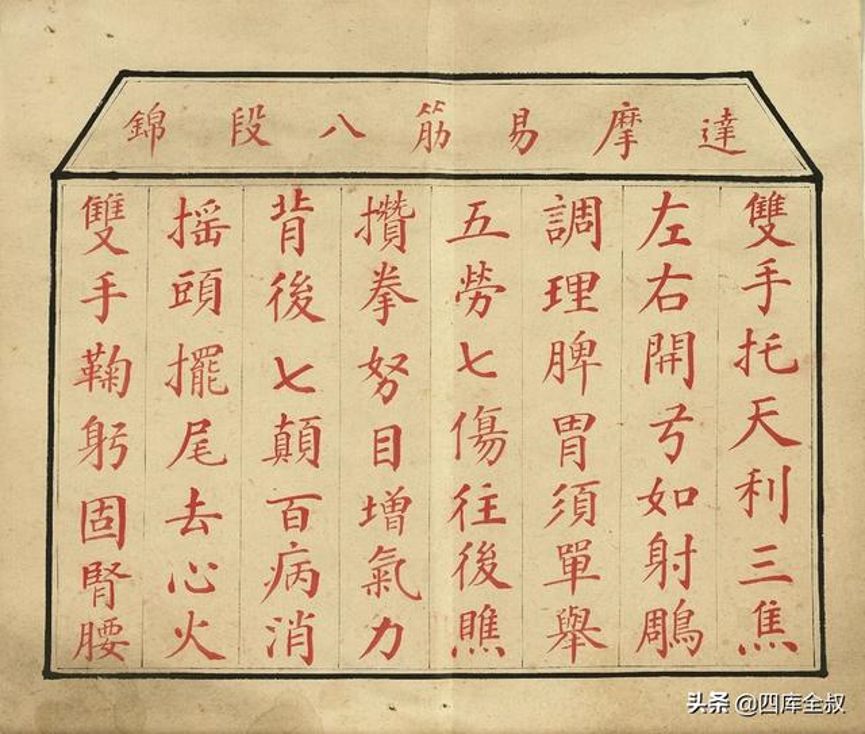 達摩易筋八段錦
雙手托天利三焦
左右開弓如射鵰
調理脾胃須單舉
五勞七傷往後瞧
攢拳努目增氣力
背後七顛百病消
搖頭擺尾去心火
雙手鞠躬固腎腰
头条 @四库全叔